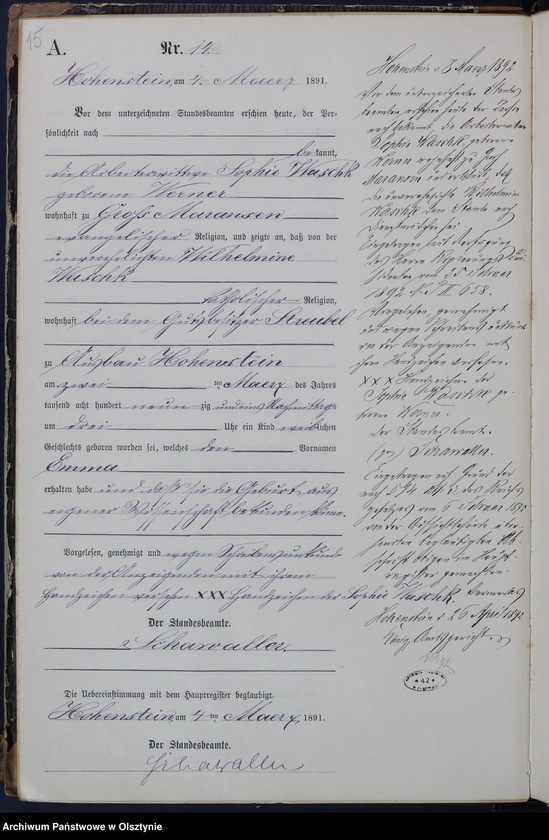 15
A.
Nr. 14
Hohenstein, am 4. Maerz 1891.
Vor dem unterzeichneten Standesbeamten erschien heute, der Per-
sönlichkeit nach
be kannt,
die Arbeiterwittwe Sophie Waschk
geborene Werner
wohnhaft zu Groß Maransen
evangelischer Religion, und zeigte an, daß von der
unverehelichten Wilhelmine
Waschk
katholischer Religion,
wohnhaft bei dem Gutsbesitzer Straubel
zu Ausbau Hohenstein
am zwei ten Maerz des Jahres
tausend acht hundert neun zig und eins Nachmittags
um drei Uhr ein Kind weiblichen
Geschlechts geboren worden sei, welches den Vornamen
Emma
erhalten habe und daß sie die Geburt aus
eigener Wissenschaft bekunden könne.
Vorgelesen, genehmigt und wegen Schreibensunkunde
von der Anzeigenden mit ihrem
Handzeichen versehen XXX Handzeichen der Sophie Waschk.
Der Standesbeamte.
Schawaller
Die Uebereinstimmung mit dem Hauptregister beglaubigt.
Hohenstein, am 4 ten Maerz 1891.
Der Standesbeamte.
Schawaller
Hohenstein, 3 Maerz 1892
Vor dem unterzeichneten Standes
beamten erschien heute der Person
nach bekannt, die Arbeiterwittwe
Sophie Waschk, geborene
Maransen und erklärt, daß
die unverehelichte Wilhelmine
Waschk dem Stande nach
Dienstmädchen sei.
Eingetragen mit Verfügung
des Herrn Regierungs Prä
sidenten vom 25 Februar
1892
Vorgelesen, genehmigt
und wegen Schreibensunkunde
von der Anzeigenden mit
ihrem Handzeichen versehen.
XXX Handzeichen der
Sophie Waschk ge-
borene
der Standesbeamte.
Schawaller.
Eingetragen auf Grund des
des Reichs
gesetzes vom 6 Februar 1875
Hohenstein, 26 April 1892
Königl. Amtsgericht.
42
Archiwum Państwowe w Olsztynie